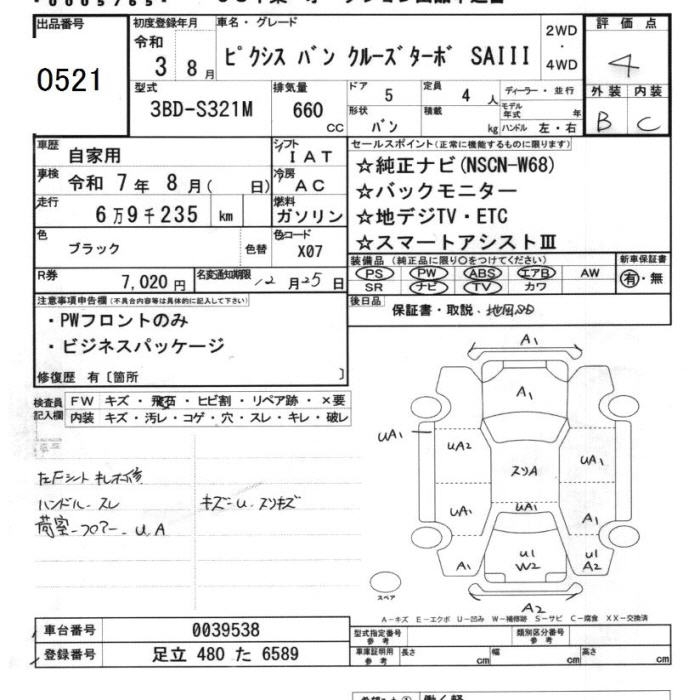 出品番号
0521
初度登録年月
令和
3 8月
車名・グレード
ピクシス バン クルーズターボ SAIII
2WD
・
4WD
評価点
4
外装 内装
B C
型式
3BD-S321M
排気量
660
CC
ドア
5
定員
4 人
形状
バン
積載
kg
ディーラー・並行
モデル年式
年
ハンドル 左・右
車歴
自家用
車検
令和 7年 8月( 日)
走行
6万9千235 km
色
ブラック
色替
シフト
IAT
冷房
AC
燃料
ガソリン
色コード
X07
R券
7,020円
名変通知期限
12月25日
セールスポイント(正常に機能するものに限ります)
☆純正ナビ(NSCN-W68)
☆バックモニター
☆地デジTV・ETC
☆スマートアシストⅢ
装備品 (純正品に限り○をつけてください)
PS PW ABS エアB AW
SR ナビ TV カワ
新車保証書
有・無
後日品
保証書・取説・地図SD
注意事項申告欄(不具合内容等は具体的に記入して下さい)
・PWフロントのみ
・ビジネスパッケージ
修復歴 有〔箇所 〕
検査員
記入欄
FW キズ・飛石・ヒビ割・リペア跡・×要
内装 キズ・汚レ・コゲ・穴・スレ・キレ・破レ
ハンドル-スレ
荷室-フロアー-U.A
キズ=U.スリキズ
A1
A1
UA1
UA2
スリA
UA1
UA1
UA1
A1
A1
U1
W2
U1
A2
A2
スペア
A-キズ E-エクボ U-凹み W-補修跡 S-サビ C-腐食 XX-交換済
車台番号
0039538
登録番号
足立 480 た 6589
型式指定番号
参考
類別区分番号
参考
車庫証明用
参考
長さ
cm
幅
cm
高さ
cm